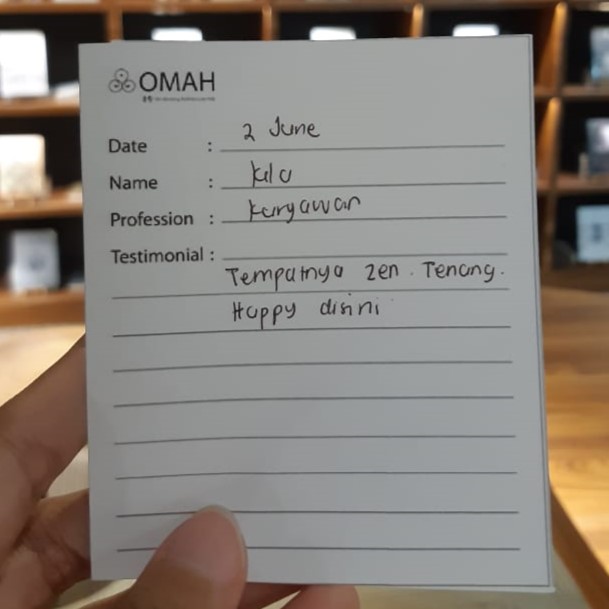 OMAH
Date : 2 June
Name : Kila
Profession : Karyawan
Testimonial :
Tempatnya zen. Tenang.
Happy disini